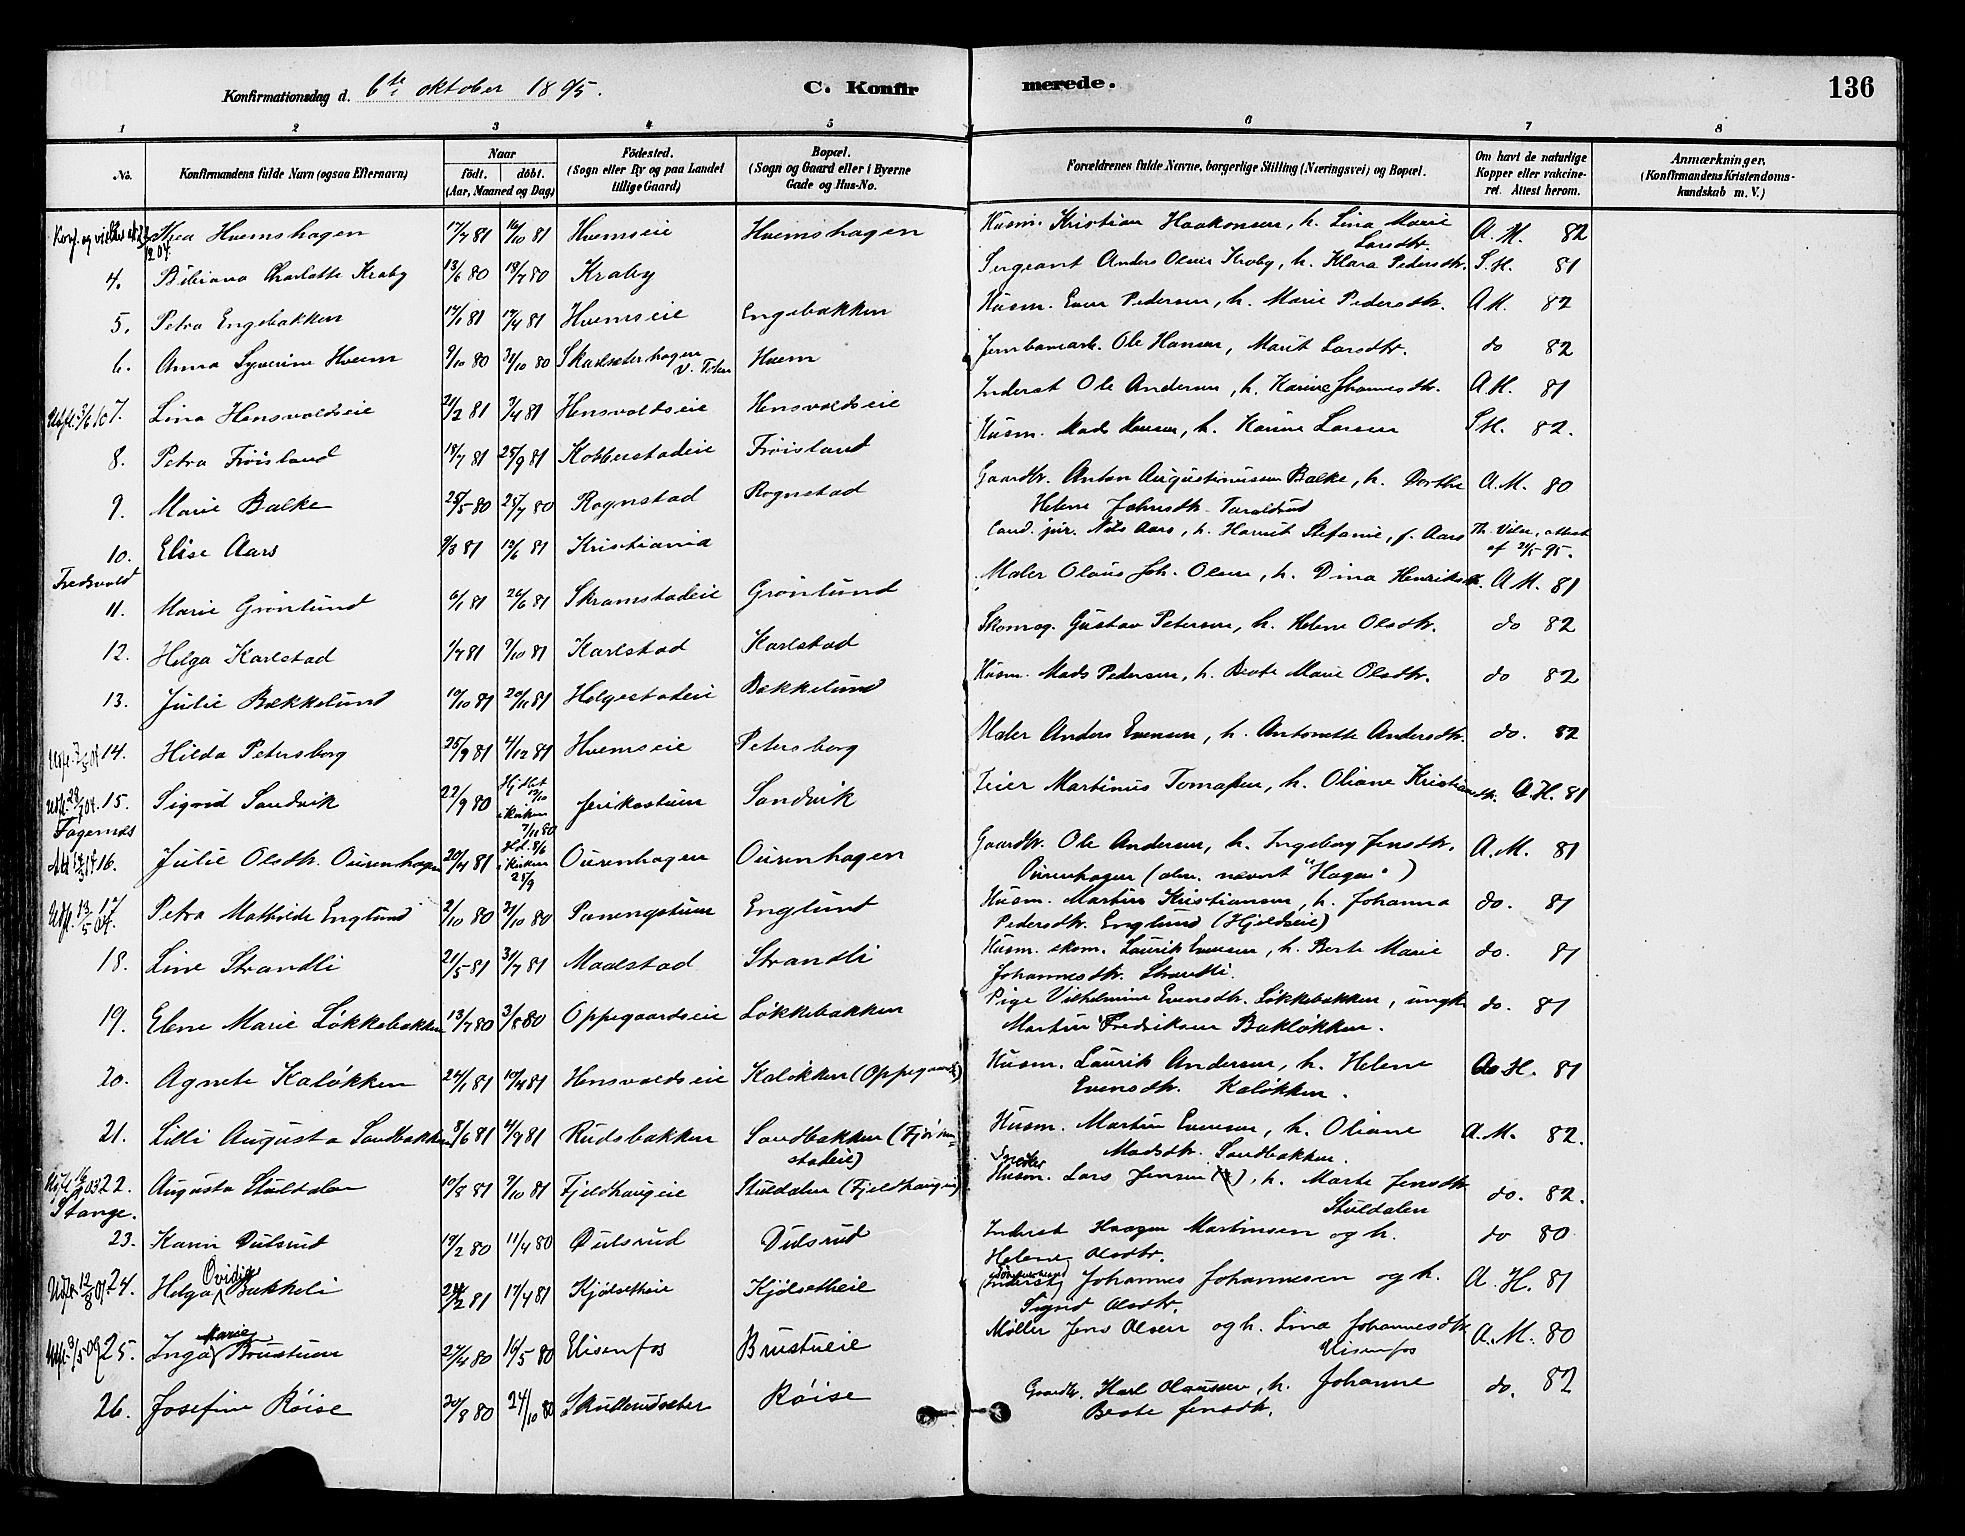 Konfirmationsdag d. 6te oktober 1895. C. Konfirmerede. 136
1 2 3 4 5 6 7 8
No. Konfirmandens fulde Navn (ogsaa Efternavn) Naar födt. döbt. (Aar, Maaned og Dag) Födested. (Sogn eller By og paa Landet tillige Gaard) Bopæl. (Sogn og Gaard eller i Byerne Gade og Hus-No. Forældrenes fulde Navne, borgerlige Stilling (Næringsvei) og Bopæl. Om havt de naturlige Kopper eller vakcineret. Attest herom. Anmærkninger. (Konfirmandens Kristendomskundskab m. V.)
Thea Huemshagen 17/7 81 16/10 81 Huemseie Huemshagen Husm. Kristian Haakonsen, h. Lina Marie Larsdtr. A. M. 82
4. Bibiana Charlotte Kraby 13/6 80 18/7 80 Kraby Sergeant Anders Olsen Kraby, h. Klara Pedersdtr. S. H. 81
5. Petra Engebakken 14/1 81 17/4 81 Huemseie Engebakken Husm. Even Pedersen, h. Marie Pedersdtr. A M. 82
6. Anna Syverine Huem 9/10 80 31/10 80 Skaelseterhagen V. Toten Huem Jernbanearb. Ole Hansen, Marit Larsdtr. do 82
7. Lina Hensvoldseie 21/2 81 3/4 81 Hensvoldseie Hensvoldseie Inderst Ole Andersen, h. Karine Johannesdtr. A H. 81
8. Petra Fröisland 18/7 81 25/9 81 Kobberstadeie Fröisland Husm. Mads Hansen, h. Karine Larsen S H. 82.
9. Marie Balke 25/5 80 25/7 80 Rognstad Rognstad Gaardbr. Anton Augustinussen Balke, h. Dorthe Helene Johnsdtr. Taraldrud A. M. 80
10. Elise Aars 9/3 81 12/6 81 Kristiania Cand. jur. Nils Aars, h. Harriet Stefanie, f. Aars attest af 21/5-95.
Fredsvold
11. Marie Grönlund 6/1 81 26/6 81 Skramstadeie Grönlund Maler Olaus Joh. Olsen, h. Dina Henriksdtr. A M. 81
12. Helga Karlstad 1/7 81 9/10 81 Karlstad Karlstad Skomag. Gustav Petersen, h. Helene Olsdtr. do 82
13. Julie Bækkelund 10/10 81 20/11 81 Helgestadeie Bækkelund Husm. Mads Pedersen, h. Beate Marie Olsdtr. do 82
14. Hilda Petersborg 25/9 81 4/12 81 Huemseie Petersborg Maler Anders Evensen, h. Antonette Andersdtr. do. 82
15. Sigrid Sandvik 22/9 80 Hj.döbt 12/10 i kirken 7/11 80 Jerikostuen Sandvik Feier Martinus Tomassen, h. Oliane Kristiansdtr. A. H. 81
Fagernes
16. Julie Olsdtr. Ourenhagen 20/4 81 Hd. 8/6 i kirken 25/9 Ourenhagen Ourenhagen Gaardbr. Ole Andersen, h. Ingeborg Jensdtr. Ourenhagen (alm. nævnt "Hagen") A. M. 81
17. Petra Mathilde Englund 2/10 80 31/10 80 Paneng­stuen Englund Husm. Martin Kristiansen, h. Johanna Pedersdtr. Englund (Hjeldseie) do. 81
18. Line Strandli 21/5 81 31/7 81 Madstad Strandli Husm. skom. Laurits Evensen, h. Berte Marie Johannesdtr. Strandli. do. 81
19. Elene Marie Lökkebakken 13/7 80 3/8 80 Oppegaardseie Lökkebakken Pige Vilhelmine Evensdtr. Lökkebakken, ungk. Martin Fredriksen Baklökken. do. 81
20. Agnete Kalökken 24/1 81 10/4 81 Hensvoldseie Kalökken (Oppegaard) Husm. Laurits Andersen, h. Helene Evensdtr. Kalökken. A. H. 81
21. Lilli Augusta Sandbakken 8/6 81 4/7 81 Rudsbakken Sandbakken (Fjörkenstadeie) Husm. Martin Evensen, h. Oliane Madsdtr. Sandbakken. A. M. 82.
22. Augusta Stuldalen 10/8 81 9/10 81 Fjeldhaugeie Stuldalen (Fjeldhaugeie) Husm. Lars Jensen, h. Marte Jensdtr. Stuldalen do. 82.
Stange.
23. Karin Dulsrud 19/2 80 11/4 80 Dulsrud Dulsrud Inderst Haagen Martinsen og h. Helene Olsdtr. do 80
24. Helga Ovidia Bakkeli 24/2 81 17/4 81 Kjölsetheie Kjölsetheie Inderst Johannes Johannesen og h. Sigrid Olsdtr. A. H. 81
25. Inga Marie Brustuen 24/4 80 16/5 80 Eisenfos Brustueie Møller Jens Olsen og h. Lina Johannesdtr. Eisenfos A. M. 80
26. Josefine Röise 30/8 80 24/10 80 Skullerudseter Röise Gaardbr. Karl Olaussen, h. Johanne Beate Jensdtr. do. 82